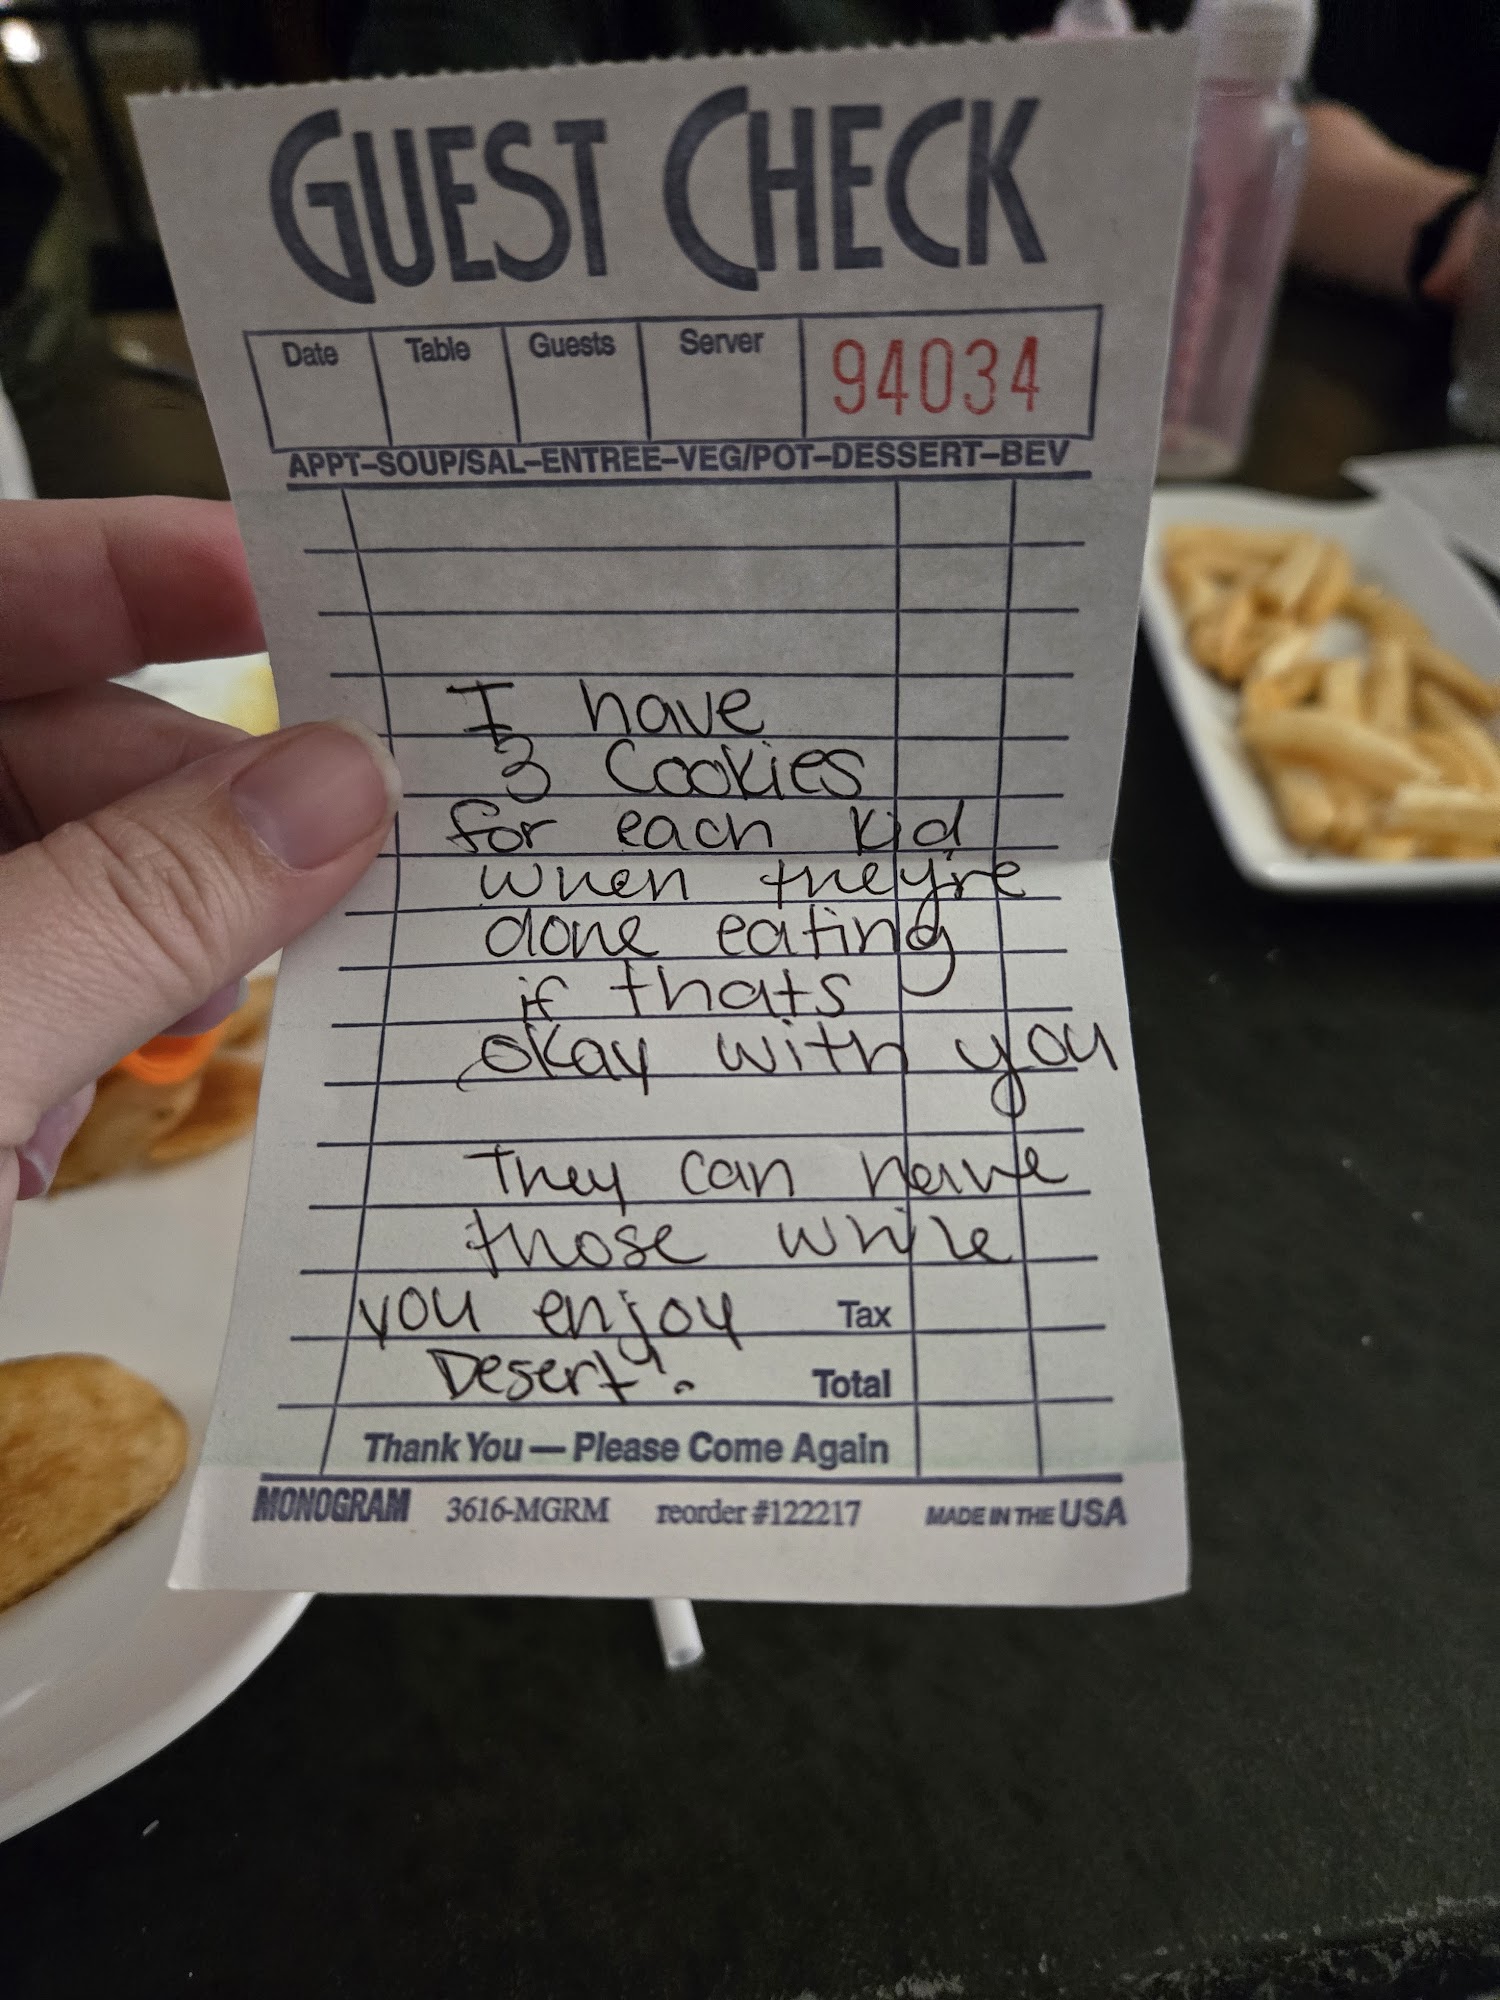 GUEST CHECK
Date Table Guests Server 94034
APPT–SOUP/SAL–ENTREE–VEG/POT–DESSERT–BEV
I have
3 Cookies
for each kid
when they're
done eating
if thats
okay with you
They can have
those while
you enjoy Tax
Desert". Total
Thank You — Please Come Again
MONOGRAM 3616-MGRM reorder #122217 MADE IN THE USA